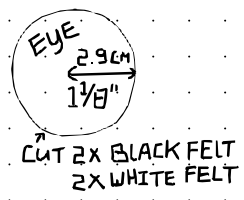 EYE
2.9CM
1 1/8"
CUT 2X BLACK FELT
2X WHITE FELT